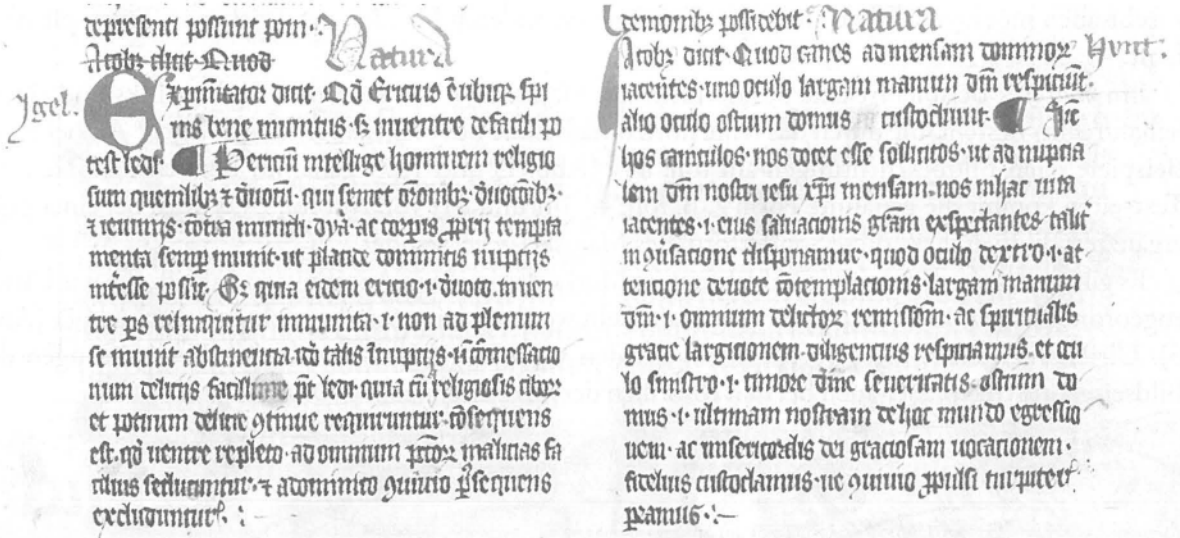 depresenti possunt poni ·:· Natura
Actobꝫ dicit · Quod
Igel. Exp̲im̅tator dicit · Qd̅ Ericius e̅ ubiqꝫ spi
nis bene munitus · sꝫ in uentre de facili po
test ledi · ¶ Per iciu̅ intellige hominem religio
sum quemlibꝫ ⁊ deuotu̅ · qui semet or̅onibꝫ · deuoc̅oibꝫ ·
⁊ ieiunijs · co̅tra inimici · dya · ac corpis p̲prij tempta
menta semp̲ munit · ut placide dominicis nuptijs
int̅esse possit · Et quia eidem ericio · i · deuoto · in uen
tre p̲s relinquitur inmunita · i · non ad plenum
se munit abstinentia · ido̅ talis in nuptijs · ⁊ co̅messacio
num delicijs facillime pt̅ ledi · quia cu̅ religiosis cibor̅
et potuum delicie ꝯtinue requiruntur · co̅sequens
est · qd̅ uentre repleto · ad omnium pcc̅or̅ malicias fa
cilius seducuntur · ⁊ a dominico ꝯuiuio p̲sequens
excluduntur ·:·
demonibꝫ possidebit · Natura
Actobꝫ dicit · Quod canes ad mensam dominor̅ Hunt :
iacentes · uno oculo largam manum dn̅i respiciu̅t ·
alio oculo ostium domus custodiunt · ¶ Per
hos caniculos · nos docet esse sollicitos · ut ad nupcia
lem dn̅i nostri iesu xp̅i mensam · nos in hac uita
iacentes · i · eius saluacionis gr̅am exspectantes · talit̅
in ꝯu̅sacione disponamur · quod oculo dextro · i · at
tencione deuote co̅templacionis · largam manum
dn̅i · i · omnium delictor̅ remissio̅m · ac spiritualis
gracie largicionem · diligencius respiciamus · et ocu
lo sinistro · i · timore diuine seueritatis · ostium do
mus · i · ultimam nostram de hoc mundo egressio
nem · ac misericordis dei graciosam uocacionem ·
fidelius custodiamus · ne ꝯuiuio p̲pulsi turpiter
p̲eamus ·:·